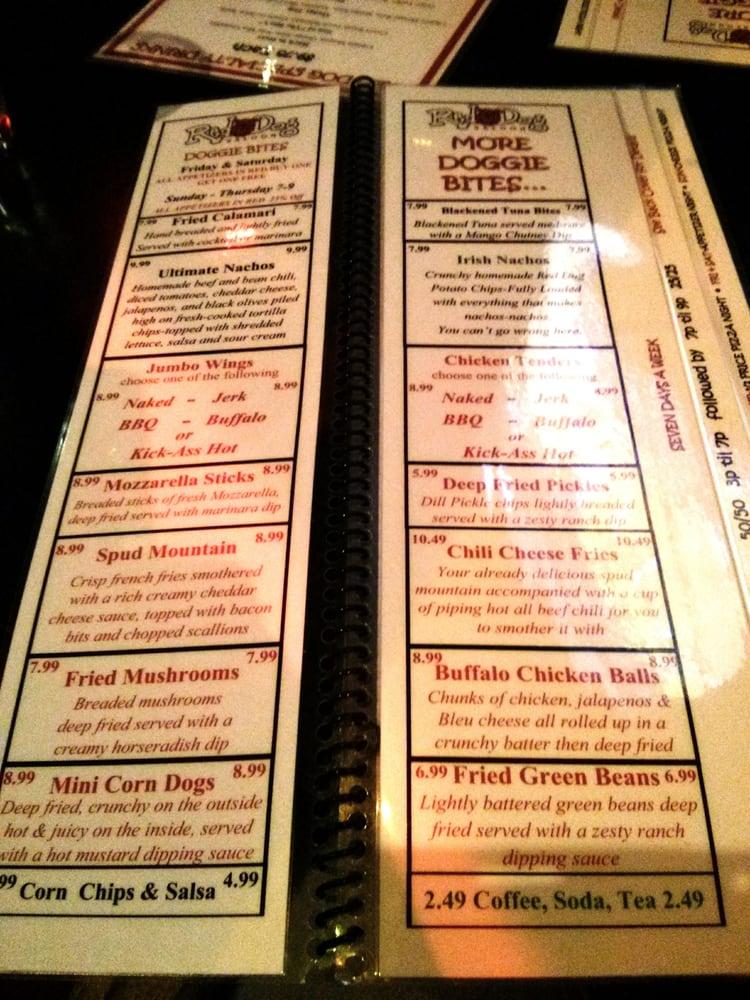 DOG SPECIALTY DRINKS
Red Dog
SALOON
DOGGIE BITES
Friday & Saturday
ALL APPETIZERS IN RED BUY ONE
GET ONE FREE
Sunday - Thursday 7-9
ALL APPETIZERS IN RED 25% off
7.99 Fried Calamari 7.99
Hand breaded and lightly fried
Served with cocktail or marinara
9.99 9.99
Ultimate Nachos
Homemade beef and bean chili,
diced tomatoes, cheddar cheese,
jalapenos, and black olives piled
high on fresh-cooked tortilla
chips-topped with shredded
lettuce, salsa and sour cream
Jumbo Wings
choose one of the following
8.99 8.99
Naked - Jerk
BBQ - Buffalo
or
Kick-Ass Hot
8.99 Mozzarella Sticks 8.99
Breaded sticks of fresh Mozzarella,
deep fried served with marinara dip
8.99 8.99
Spud Mountain
Crisp french fries smothered
with a rich creamy cheddar
cheese sauce, topped with bacon
bits and chopped scallions
7.99 7.99
Fried Mushrooms
Breaded mushrooms
deep fried served with a
creamy horseradish dip
8.99 8.99
Mini Corn Dogs
Deep fried, crunchy on the outside
hot & juicy on the inside, served
with a hot mustard dipping sauce
99 Corn Chips & Salsa 4.99
Red Dog
SALOON
MORE
DOGGIE
BITES...
7.99 Blackened Tuna Bites 7.99
Blackened Tuna served medrare
with a Mango Chutney Dip
7.99 7.99
Irish Nachos
Crunchy homemade Red Dog
Potato Chips-Fully Loaded
with everything that makes
nachos-nachos
You can't go wrong here.
Chicken Tenders
choose one of the following
8.99
Naked - Jerk
BBQ - Buffalo
or
Kick-Ass Hot
5.99 5.99
Deep Fried Pickles
Dill Pickle chips lightly breaded
served with a zesty ranch dip
10.49 10.49
Chili Cheese Fries
Your already delicious spud
mountain accompanied with a cup
of piping hot all beef chili for you
to smother it with
8.99 8.99
Buffalo Chicken Balls
Chunks of chicken, jalapenos &
Bleu cheese all rolled up in a
crunchy batter then deep fried
6.99 Fried Green Beans 6.99
Lightly battered green beans deep
fried served with a zesty ranch
dipping sauce
2.49 Coffee, Soda, Tea 2.49
SEVEN DAYS A WEEK
50/50 3p til 7p followed by 7p til 9p 25/25